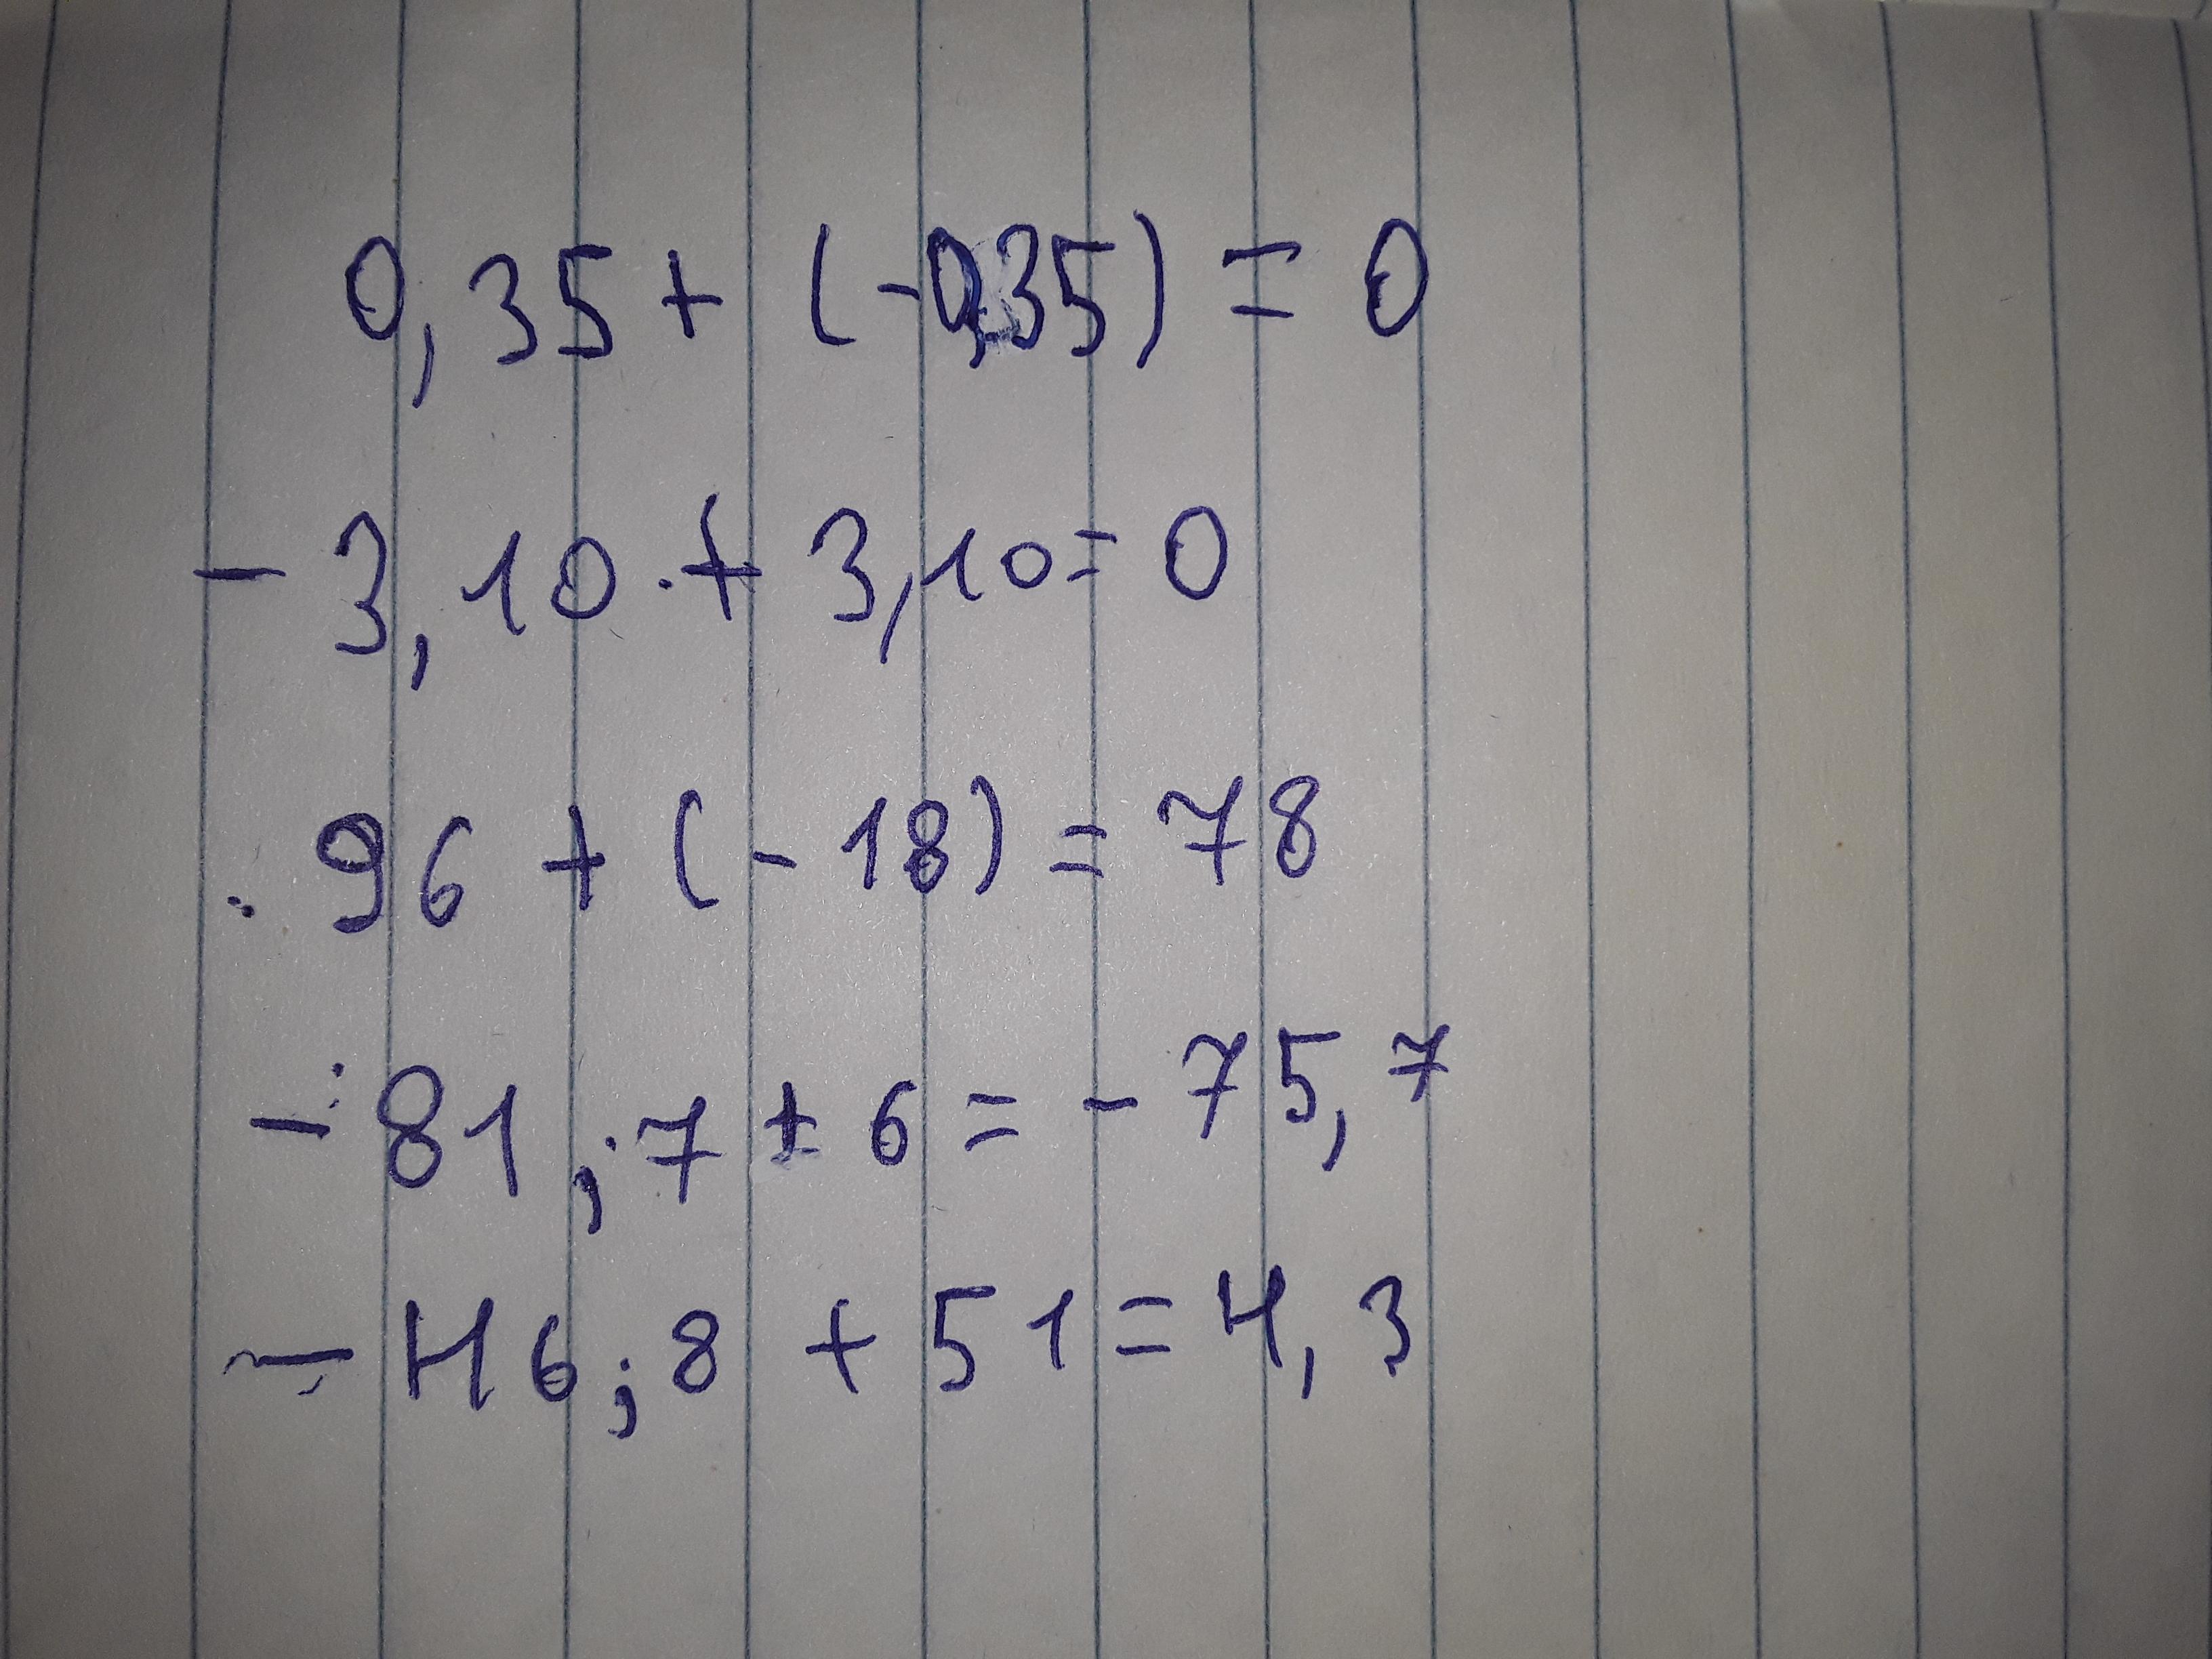 0,35 + (-0,35) = 0
- 3,10 + 3,10 = 0
96 + (- 18) = 78
- 81,7 + 6 = - 75,7
- 46,8 + 51 = 4,3